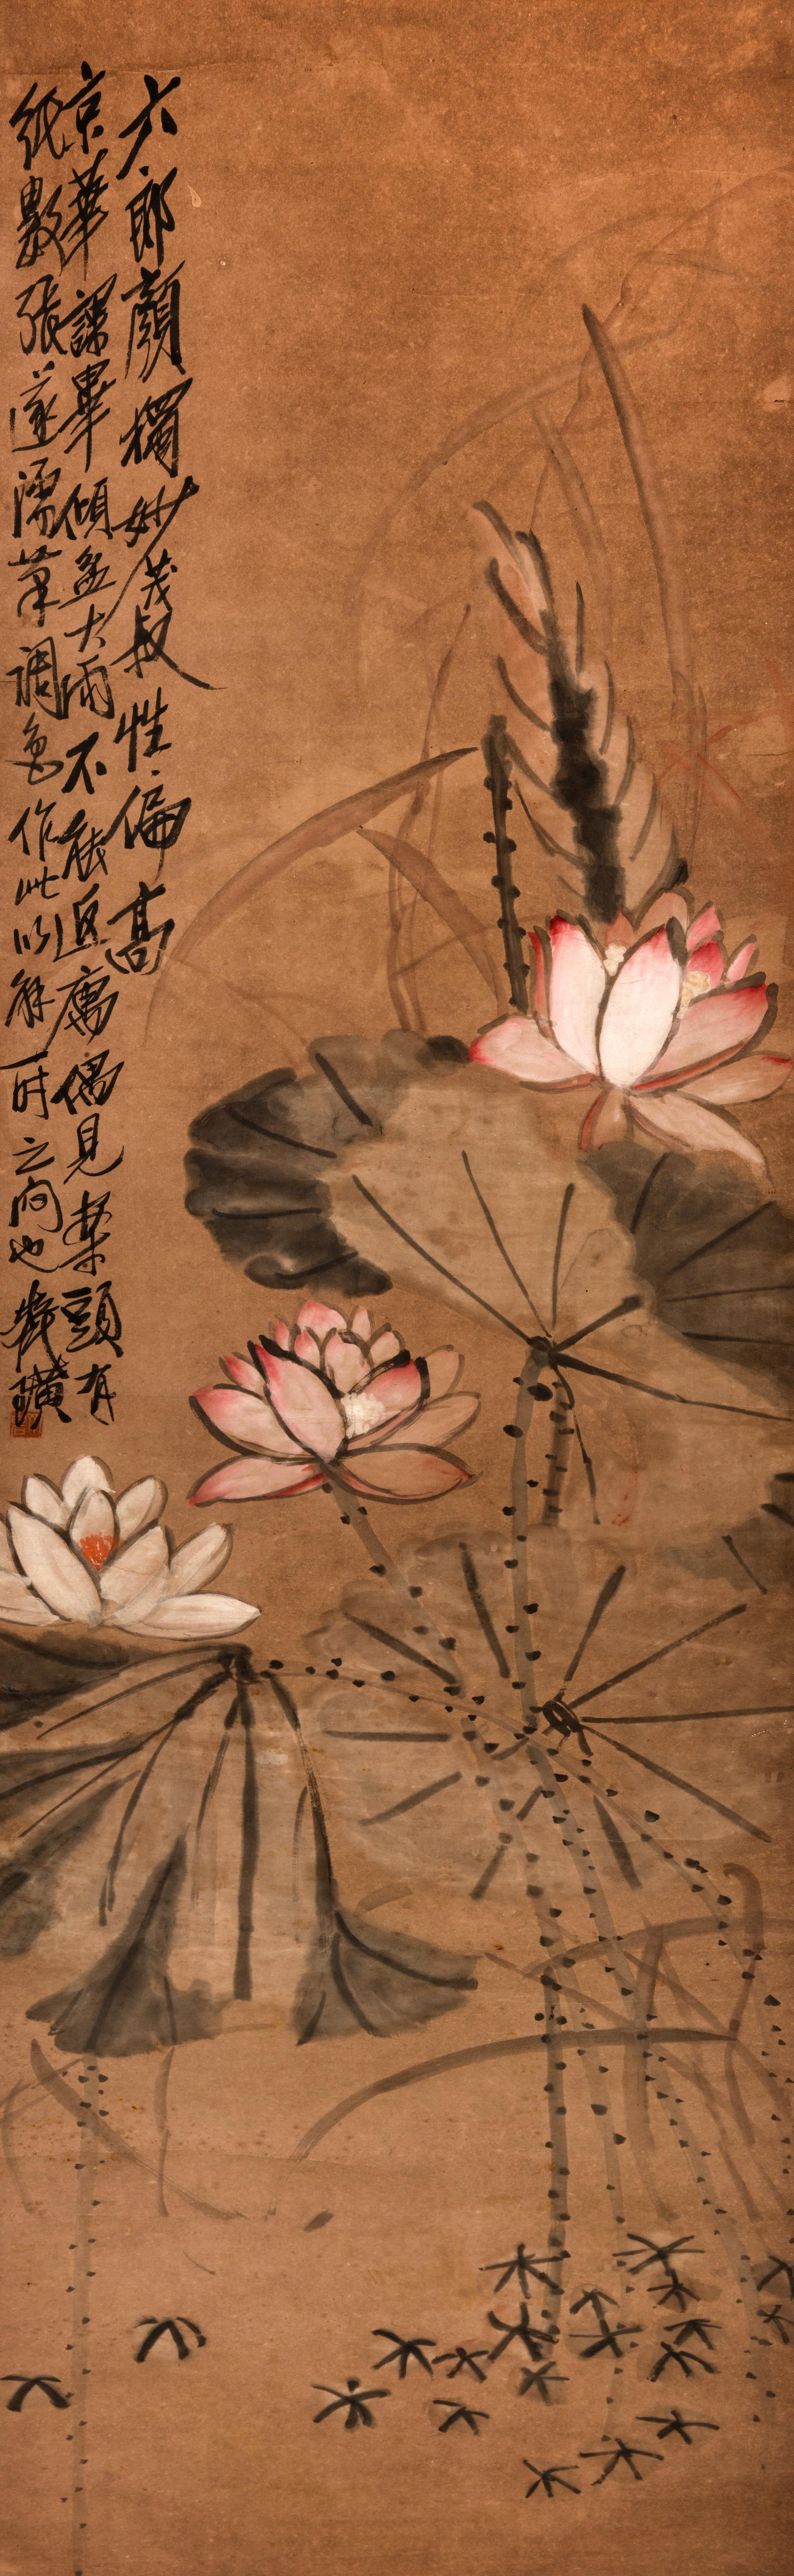 六郎顏獨妙茂叔性偏高
京華課畢傾盆大雨不能返寓偶見案頭有
紙數張遂濡筆調色作此以解一时之闷也璜